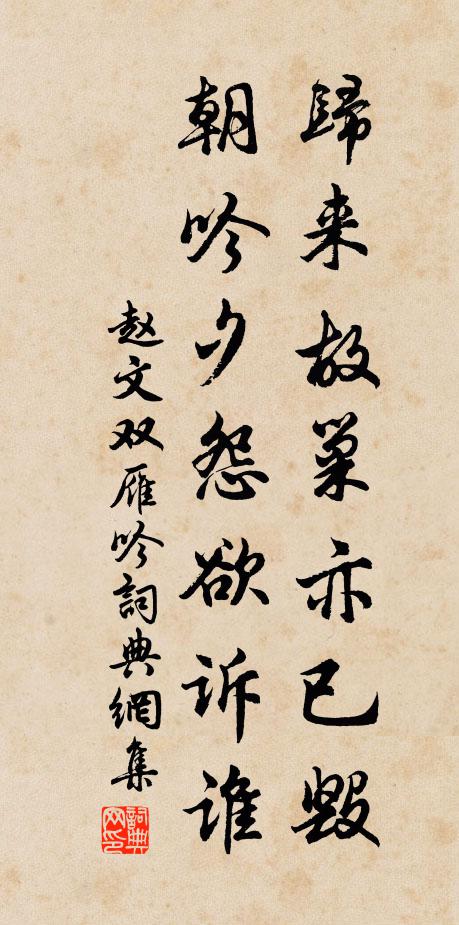 歸来故巢亦已毁
朝吟夕怨欲诉谁
赵文双雁吟詞典網集
詞典网印